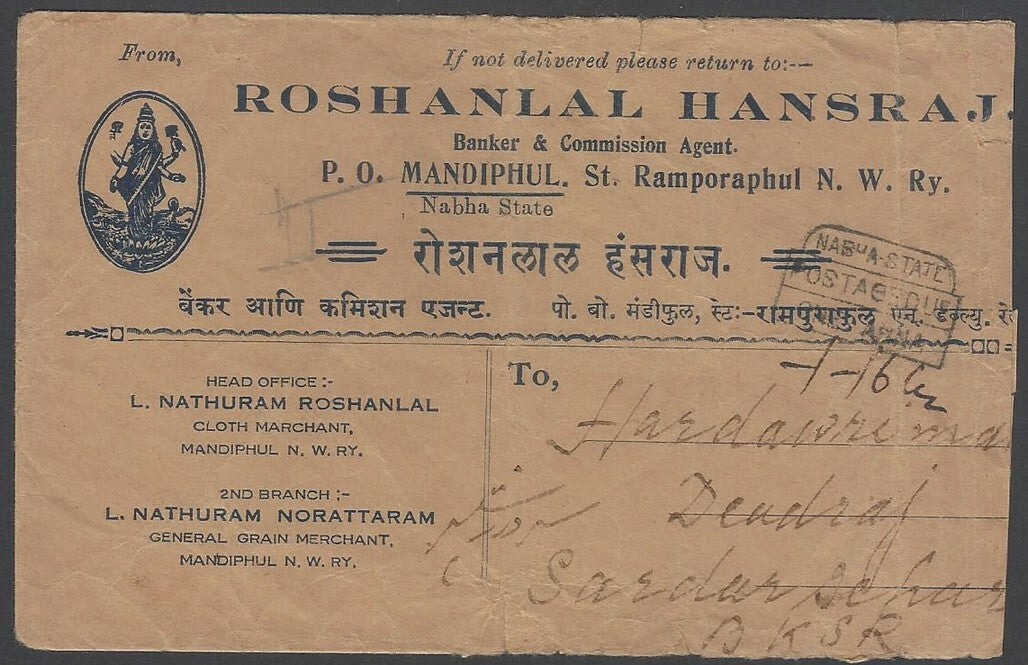 From,
If not delivered please return to:--
ROSHANLAL HANSRAJ.
Banker & Commission Agent.
P. O. MANDIPHUL. St. Ramporaphul N. W. Ry.
Nabha State
रोशनलाल हंसराज.
बेंकर आणि कमिशन एजन्ट. पो. बो. मंडीफुल, स्टे:-रामपुराफुल एन. डब्ल्यु. रे
NABHA-STATE
POSTAGE DUE
HEAD OFFICE :-
L. NATHURAM ROSHANLAL
CLOTH MARCHANT,
MANDIPHUL N. W. RY.
2ND BRANCH ;-
L. NATHURAM NORATTARAM
GENERAL GRAIN MERCHANT,
MANDIPHUL N. W. RY,
To,
Deadraj
Sardar